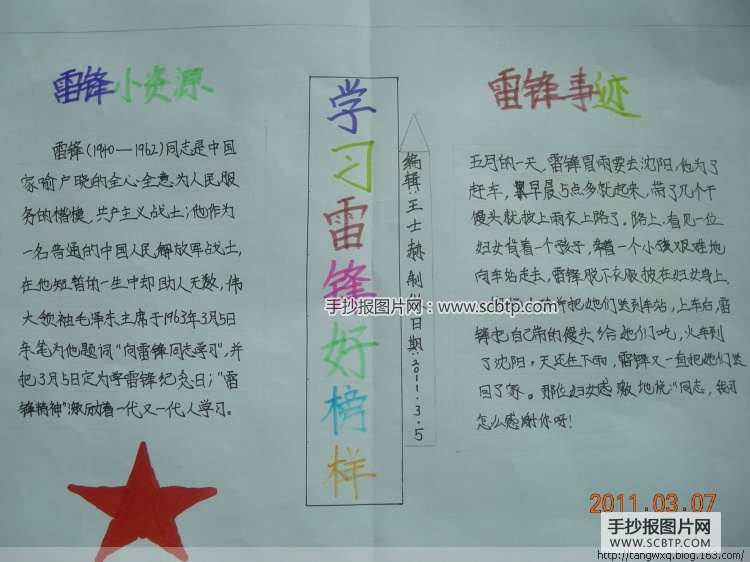 雷锋小资源
雷锋(1940—1962)同志是中国
家喻户晓的全心全意为人民服
务的楷模,共产主义战士;他作为
一名普通的中国人民解放军战士,
在他短暂的一生中却助人无数,伟
大领袖毛泽东主席于1963年3月5日
亲笔为他题词"向雷锋同志学习",并
把3月5日定为学雷锋纪念日;"雷
锋精神"激励着一代又一代人学习。
学习雷锋好榜样
编辑:王士赫 制作日期:2011.3.5
雷锋事迹
五月的一天,雷锋冒雨要去沈阳,他为了
赶车,早晨5点多就起来,带了几个干
馒头就披上雨衣上路了。路上,看见一位
妇女背着一个孩子,牵着一个小孩艰难地
向车站走去,雷锋脱下衣服披在妇女身上,
并把她们送到车站,上车后,雷
锋也自己带的馒头给她们吃,火车到
了沈阳。天还在下雨,雷锋又一直把她们送
回了家。那位妇女感激地说:"同志,我可
怎么感谢你呀!
手抄报图片网:www.scbtp.com
2011.03.07
手抄报图片网
WWW.SCBTP.COM
http://tangwxq.blog.163.com/